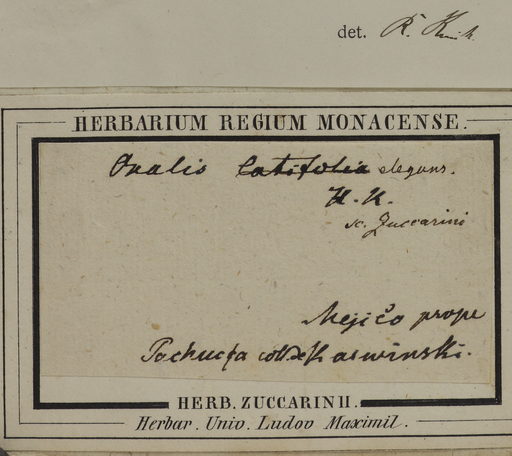 det. R. Knuth.
HERBARIUM REGIUM MONACENSE.
Oxalis latifolia elegans.
H. K.
sc. Zuccarini
Mejico prope
coll. de Karwinski.
HERB. ZUCCARINII.
Herbar. Univ. Ludov Maximil.